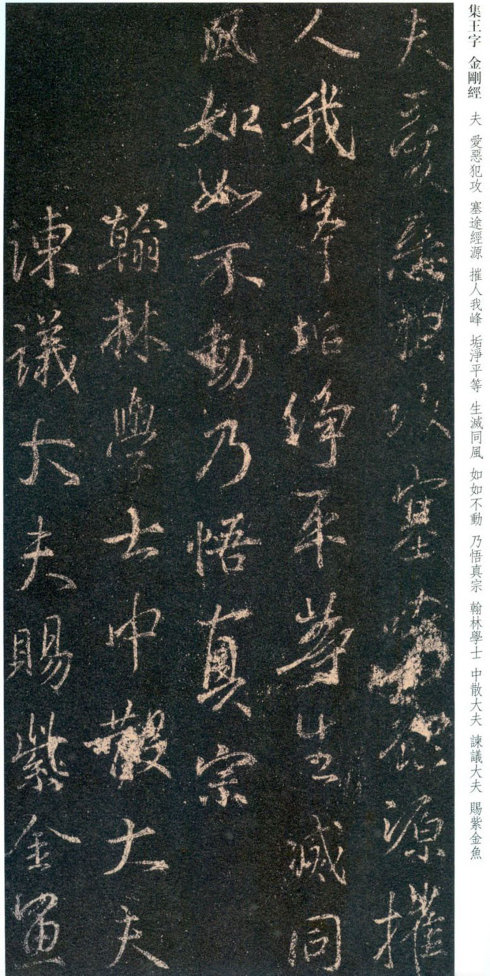 集王字 金剛經 夫 愛惡犯攻 塞途經源 摧人我峰 垢淨平等 生滅同風 如如不動 乃悟真宗 翰林學士 中散大夫 諫議大夫 賜紫金魚
夫愛惡犯攻塞途經源摧
人我峯垢淨平等生滅同
風如如不動乃悟真宗
翰林學士中散大夫
諫議大夫賜紫金魚